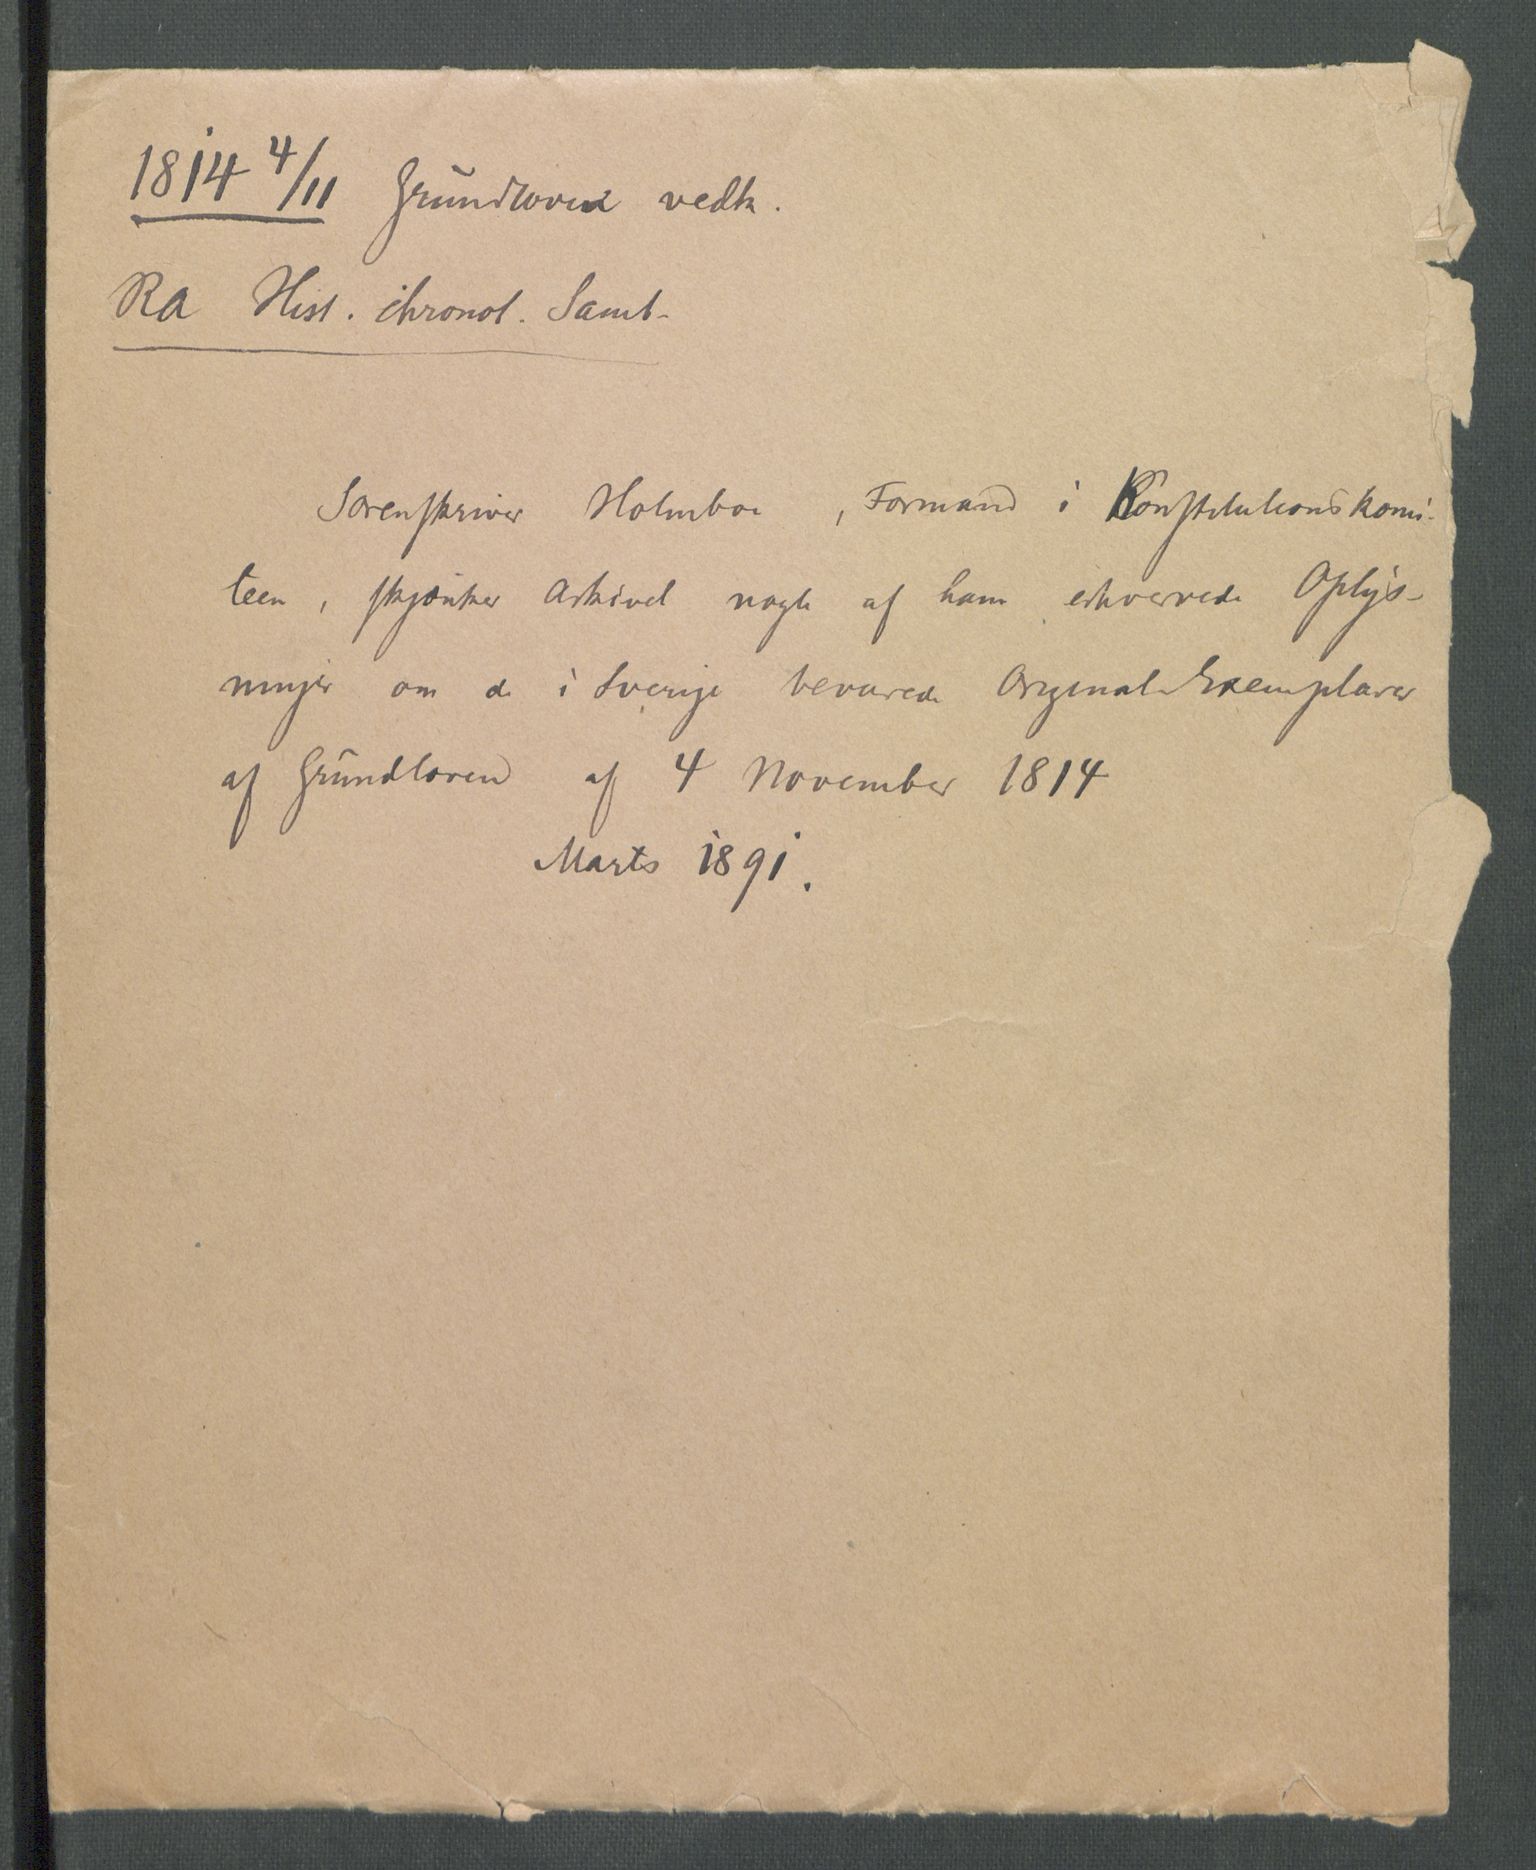 1814 4/11 Grundloven vedk.
Ra Hist. chronol. Saml.
Sorenskriver Holmboe , Formand i Konstitutionskomi-
teen, skjænker Arkivet nogle af ham erhvervede Oplys-
ninger om de i Sverige bevarede Original-Exemplarer
af Grundloven af 4 November 1814
Marts 1891.